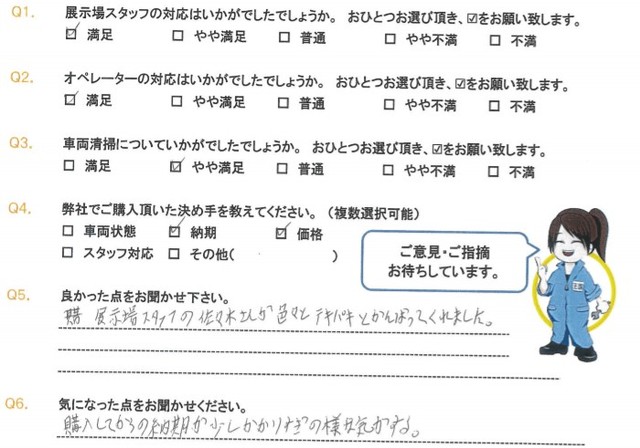 Q1. 展示場スタッフの対応はいかがでしたでしょうか。 おひとつお選び頂き、☑をお願い致します。
☑ 満足 □ やや満足 □ 普通 □ やや不満 □ 不満
Q2. オペレーターの対応はいかがでしたでしょうか。 おひとつお選び頂き、☑をお願い致します。
☑ 満足 □ やや満足 □ 普通 □ やや不満 □ 不満
Q3. 車両清掃についていかがでしたでしょうか。 おひとつお選び頂き、☑をお願い致します。
□ 満足 ☑ やや満足 □ 普通 □ やや不満 □ 不満
Q4. 弊社でご購入頂いた決め手を教えてください。（複数選択可能）
□ 車両状態 ☑ 納期 ☑ 価格
□ スタッフ対応 □ その他( )
ご意見・ご指摘
お待ちしています。
Q5. 良かった点をお聞かせ下さい。
購 展示場スタッフの佐々木さんが色々とテキパキとがんばってくれました。
Q6. 気になった点をお聞かせください。
購入してからの納期が少しかかりすぎの様な気がする。